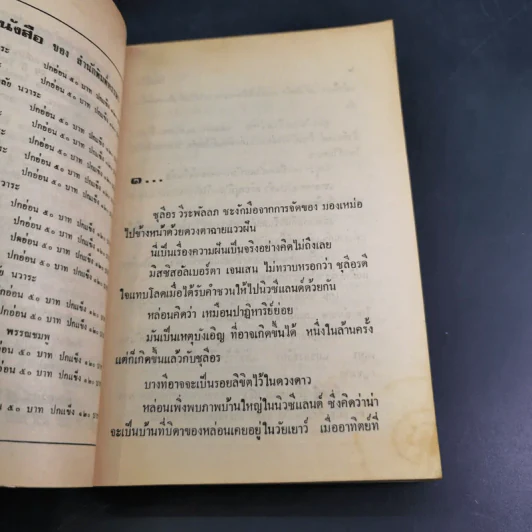 นังสือ ของ
วาระ
ปกอ่อน ๕๐ บาท ปกแข็ง
ปกอ่อน ๕๐ บาท ปกแข็ง
ลัย นวาระ
ปกอ่อน ๕๐ บาท ปกแข็ง
ปกอ่อน ๕๐ บาท ปกแข็ง
ปกอ่อน ๕๐ บาท ปกแข็ง ๑๒๐
ปกอ่อน ๕๐ บาท ปกแข็ง ๑๒๐
วาระ
ปกอ่อน ๕๐ บาท ปกแข็ง ๑๒๐
ปกอ่อน ๕๐ บาท ปกแข็ง ๑๒๐
ปกอ่อน ๕๐ บาท ปกแข็ง ๑๒๐
ปกอ่อน ๕๐ บาท ปกแข็ง ๑๒๐
ลัย นวาระ
๕๐ บาท ปกแข็ง ๑๒๐
พรรณชมพู
๕๐ บาท ปกแข็ง ๑๒๐
๕๐ บาท ปกแข็ง ๑๒๐
๕๐ บาท ปกแข็ง ๑๒๐
๑...
ชุลีอร วีระพัลลภ ชะงักมือจากการจัดของ มองเหม่อ
ไปข้างหน้าด้วยดวงตาฉายแววฝัน
นี่เป็นเรื่องความฝันเป็นจริงอย่างคิดไม่ถึงเลย
มิสซิสอลเบอร์ตา เจนเสน ไม่ทราบหรอกว่า ชุลีอรดี
ใจแทบโลดเมื่อได้รับคำชวนให้ไปนิวซีแลนด์ด้วยกัน
หล่อนคิดว่า เหมือนปาฏิหาริย์ย่อย
มันเป็นเหตุบังเอิญ ที่อาจเกิดขึ้นได้ หนึ่งในล้านครั้ง
แต่ก็เกิดขึ้นแล้วกับชุลีอร
บางทีอาจจะเป็นรอยลิขิตไว้ในดวงดาว
หล่อนเพิ่งพบภาพบ้านใหญ่ในนิวซีแลนด์ ซึ่งคิดว่าน่า
จะเป็นบ้านที่บิดาของหล่อนเคยอยู่ในวัยเยาว์ เมื่ออาทิตย์ที่